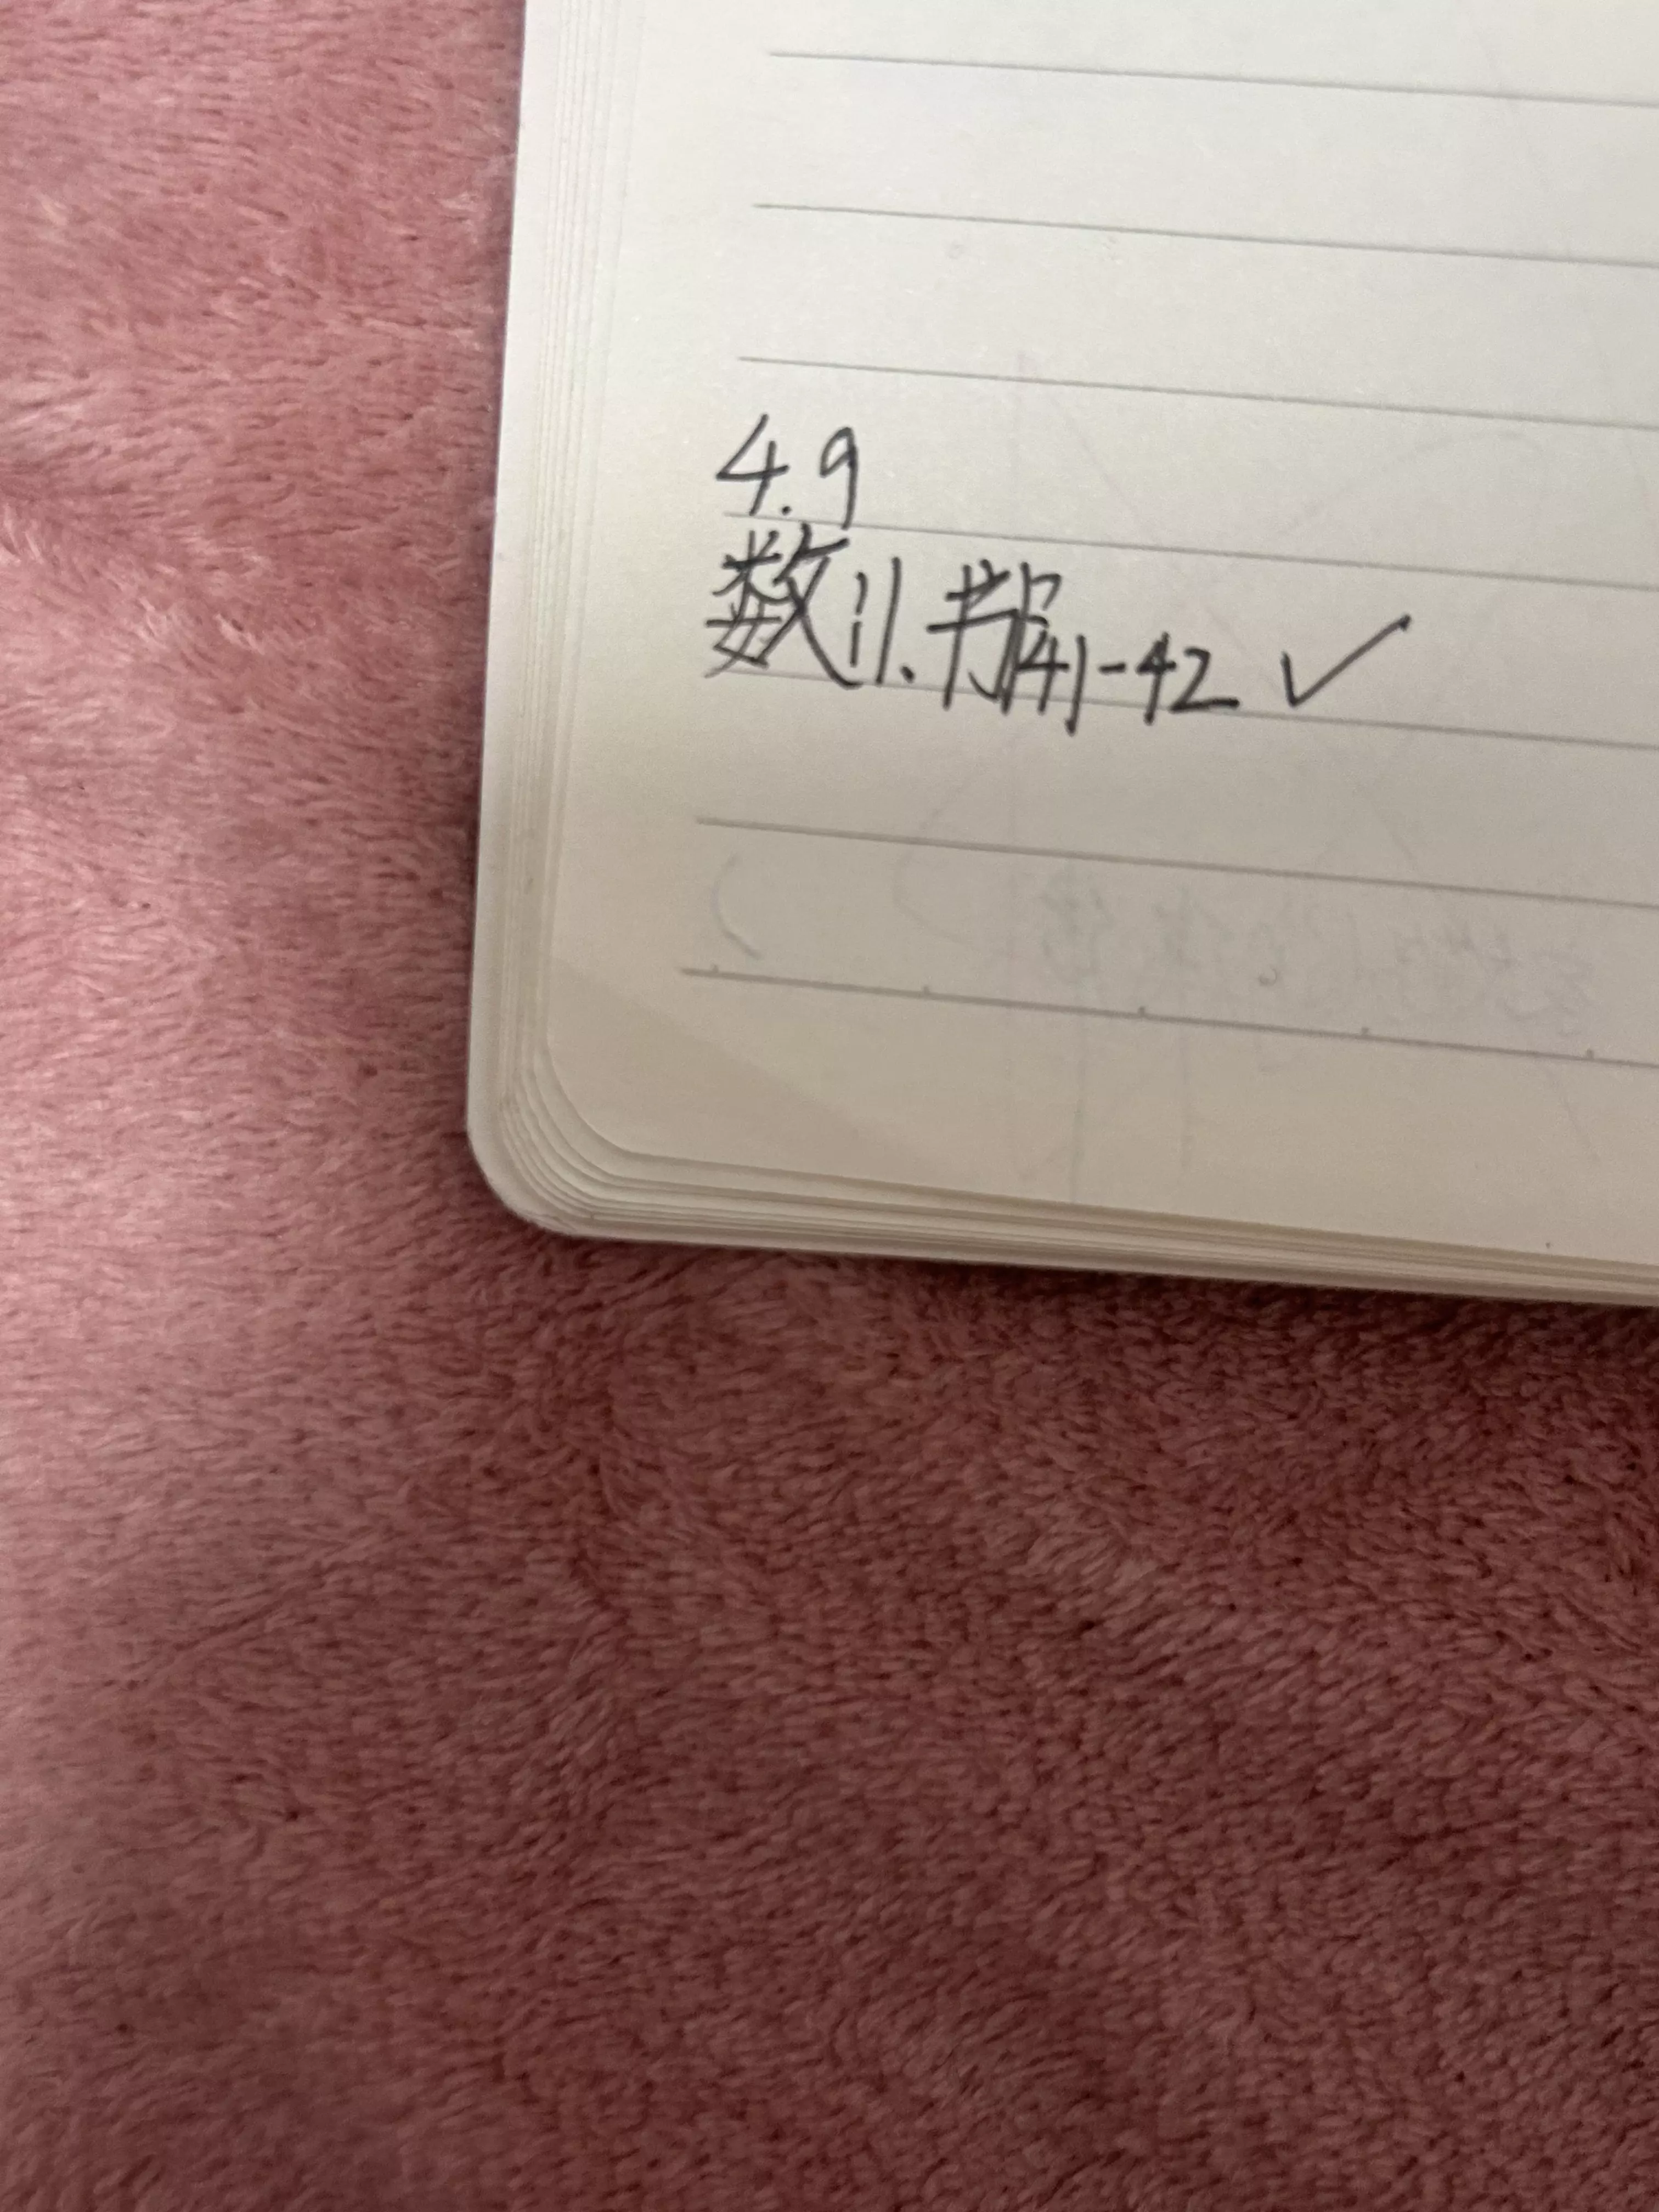 4.9
数:1.书P41-42 ✓